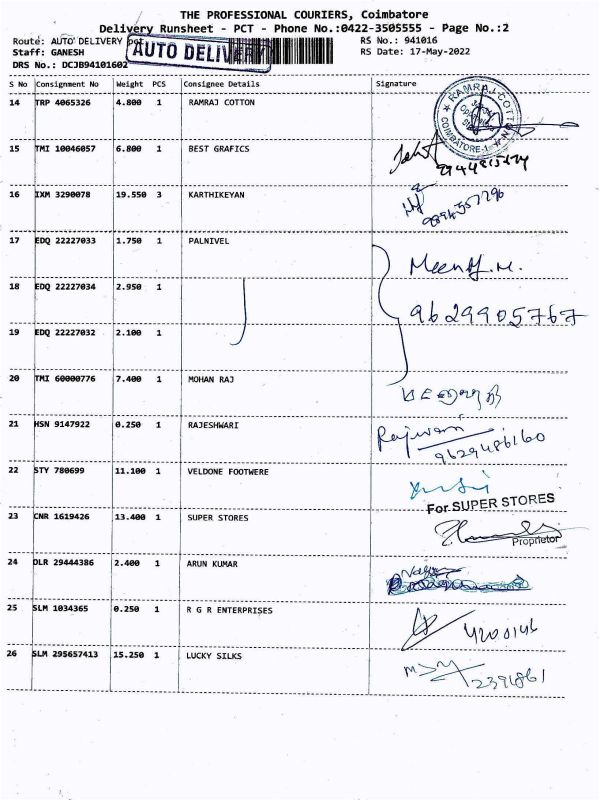 THE PROFESSIONAL COURIERS, Coimbatore
Delivery Runsheet - PCT - Phone No.:0422-3505555 - Page No.:2
Route: AUTO DELIVERY pct
AUTO DELIVERY
RS No.: 941016
Staff: GANESH
RS Date: 17-May-2022
DRS No.: DCJB94101602
S No Consignment No Weight PCS Consignee Details Signature
14 TRP 4065326 4.800 1 RAMRAJ COTTON
RAMRAJ COTTON
COIMBATORE-1
15 TMI 10046057 6.800 1 BEST GRAFICS
16 IXM 3290078 19.550 3 KARTHIKEYAN
17 EDQ 22227033 1.750 1 PALNIVEL
18 EDQ 22227034 2.950 1
9629905767
19 EDQ 22227032 2.100 1
20 TMI 60000776 7.400 1 MOHAN RAJ
21 HSN 9147922 0.250 1 RAJESHWARI
9629486160
22 STY 780699 11.100 1 VELDONE FOOTWERE
For SUPER STORES
23 CNR 1619426 13.400 1 SUPER STORES
Proprietor
24 DLR 29444386 2.400 1 ARUN KUMAR
25 SLM 1034365 0.250 1 R G R ENTERPRISES
4200146
26 SLM 295657413 15.250 1 LUCKY SILKS
2391861